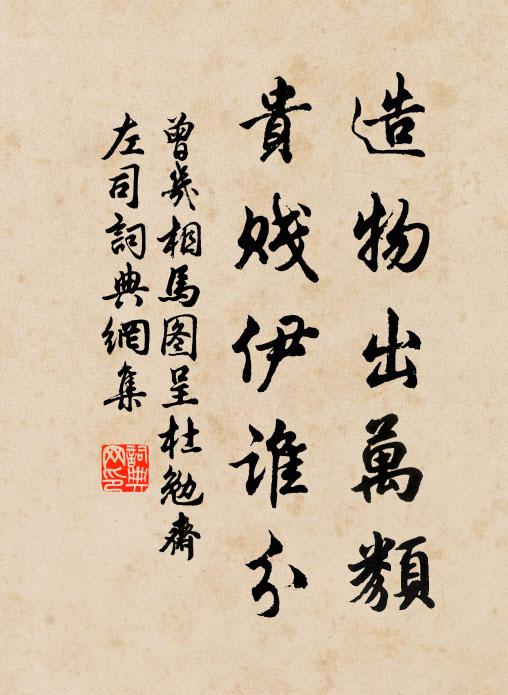 造物出萬類
貴賤伊誰分
曾幾相馬图呈杜勉齋
左司詞典網集
詞典网印